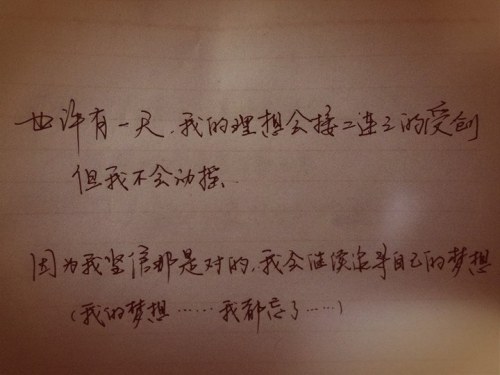 也许有一天,我的理想会接二连三的受创
但我不会动摇、
因为我坚信那是对的,我会继续追寻自己的梦想
(我的梦想……我都忘了……)